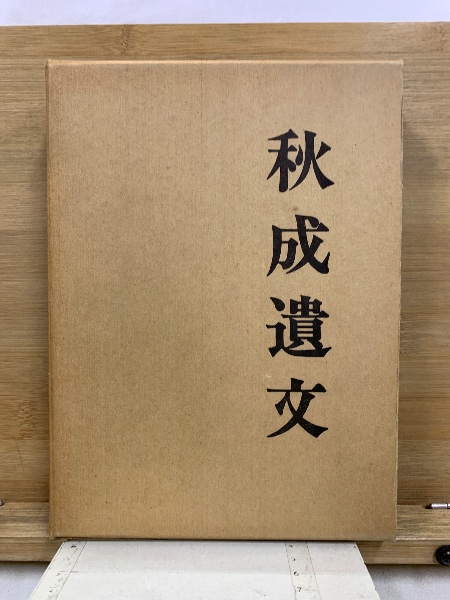 秋成遺文